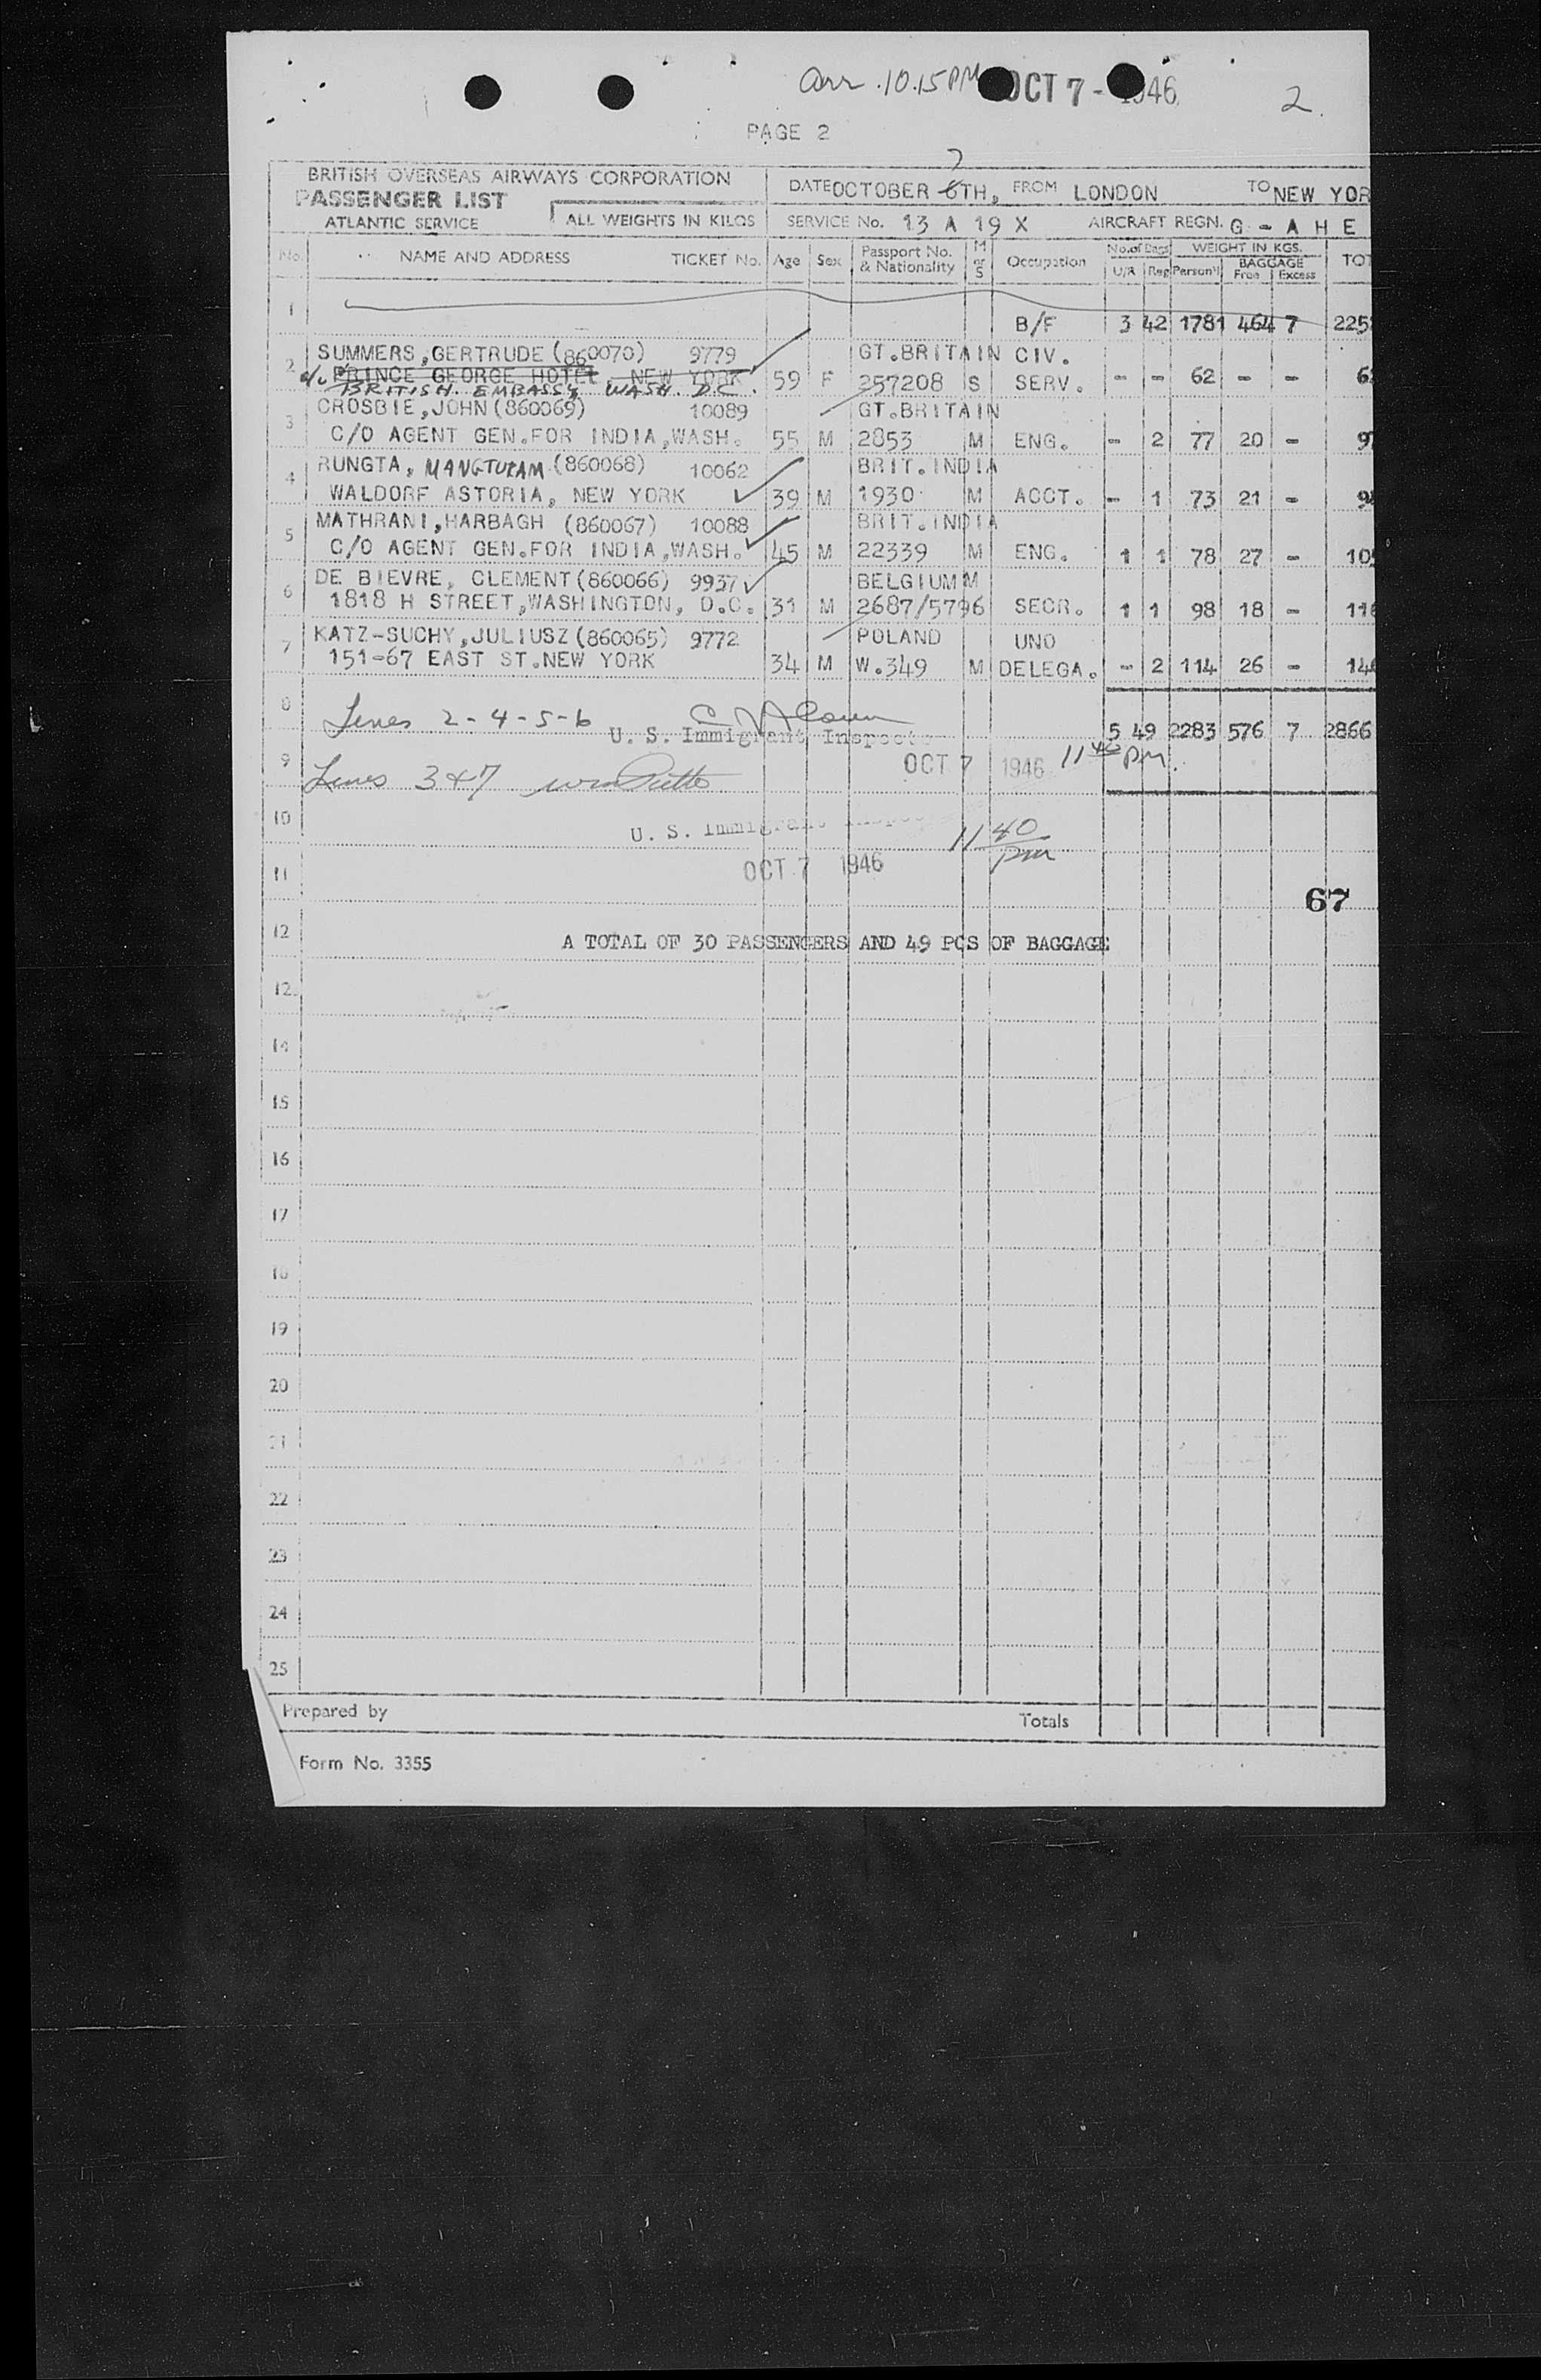 Arr. 10.15 PM OCT 7 - 1946 2.
PAGE 2
7
BRITISH OVERSEAS AIRWAYS CORPORATION
PASSENGER LIST
ATLANTIC SERVICE
ALL WEIGHTS IN KILOS
DATE OCTOBER 6TH, FROM LONDON TO NEW YOR
SERVICE No. 13 A 19 X AIRCRAFT REGN. G - A H E
No. NAME AND ADDRESS TICKET No. Age Sex Passport No. & Nationality M or S Occupation No. of Bags U/A Reg WEIGHT IN KGS. Person'l BAGGAGE Free Excess TOT
1 B/F 3 42 1781 464 7 225
2 SUMMERS, GERTRUDE (860070) 9779 GT. BRITAIN CIV.
PRINCE GEORGE HOTEL, NEW YORK 59 F 257208 S SERV. - - 62 - - 6
c/o BRITISH. EMBASSY WASH. D.C.
3 CROSBIE, JOHN (860069) 10089 GT. BRITAIN
C/O AGENT GEN. FOR INDIA, WASH. 55 M 2853 M ENG. - 2 77 20 - 9
4 RUNGTA, MANGTURAM (860068) 10062 BRIT. INDIA
WALDORF ASTORIA, NEW YORK 39 M 1930 M ACCT. - 1 73 21 - 9
5 MATHRANI, HARBAGH (860067) 10088 BRIT. INDIA
C/O AGENT GEN. FOR INDIA, WASH. 45 M 22339 M ENG. 1 1 78 27 - 10
6 DE BIEVRE, CLEMENT (860066) 9937 BELGIUM M
1818 H STREET, WASHINGTON, D.C. 31 M 2687/5796 SECR. 1 1 98 18 - 116
7 KATZ-SUCHY, JULIUSZ (860065) 9772 POLAND UNO
151-67 EAST ST. NEW YORK 34 M W.349 M DELEGA. - 2 114 26 - 140
8 Lines 2-4-5-6 5 49 2283 576 7 2866
U. S. Immigrant Inspector
9 OCT 7 1946 11 40 PM.
Lines 3 & 7
10 U. S. Immigrant Inspec 11 40 pm
11 OCT 7 1946
67
12 A TOTAL OF 30 PASSENGERS AND 49 PCS OF BAGGAGE
12.
14
15
16
17
18
19
20
21
22
23
24
25
Prepared by Totals
Form No. 3355